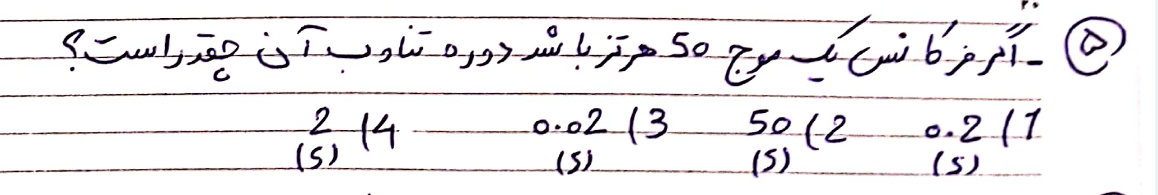 ۵ - اگر فرکانس یک موج 50 هرتز باشد دوره تناوب آن چقدر است؟
1) 0.2 (s) 2) 50 (s) 3) 0.02 (s) 4) 2 (s)